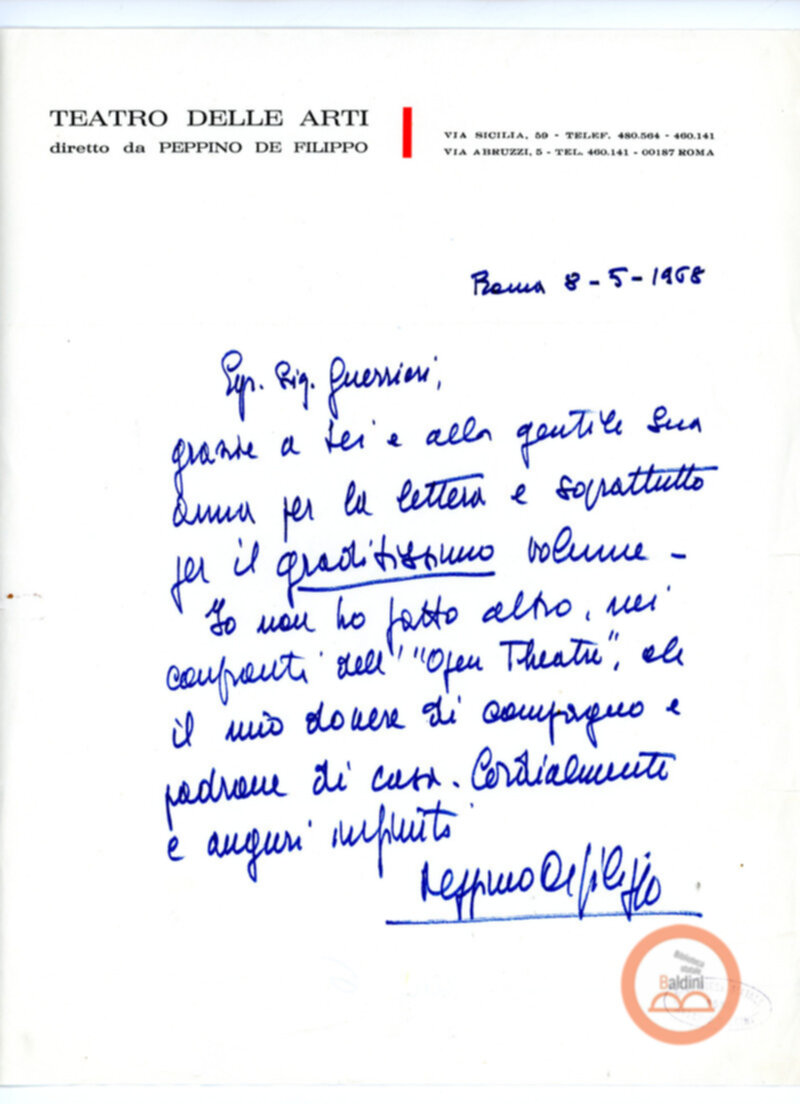 TEATRO DELLE ARTI
diretto da PEPPINO DE FILIPPO
VIA SICILIA, 59 - TELEF. 480.564 - 460.141
VIA ABRUZZI, 5 - TEL. 460.141 - 00187 ROMA
Roma 8-5-1968
Egr. Sig. Guerrieri,
grazie a Lei e alla gentile sua
Anna per la lettera e soprattutto
per il graditissimo volume -
Io non ho fatto altro, nei
confronti dell' "Open Theatre", che
il mio dovere di compagno e
padrone di casa. Cordialmente
e auguri infiniti
Peppino De Filippo
Biblioteca
statale
Baldini